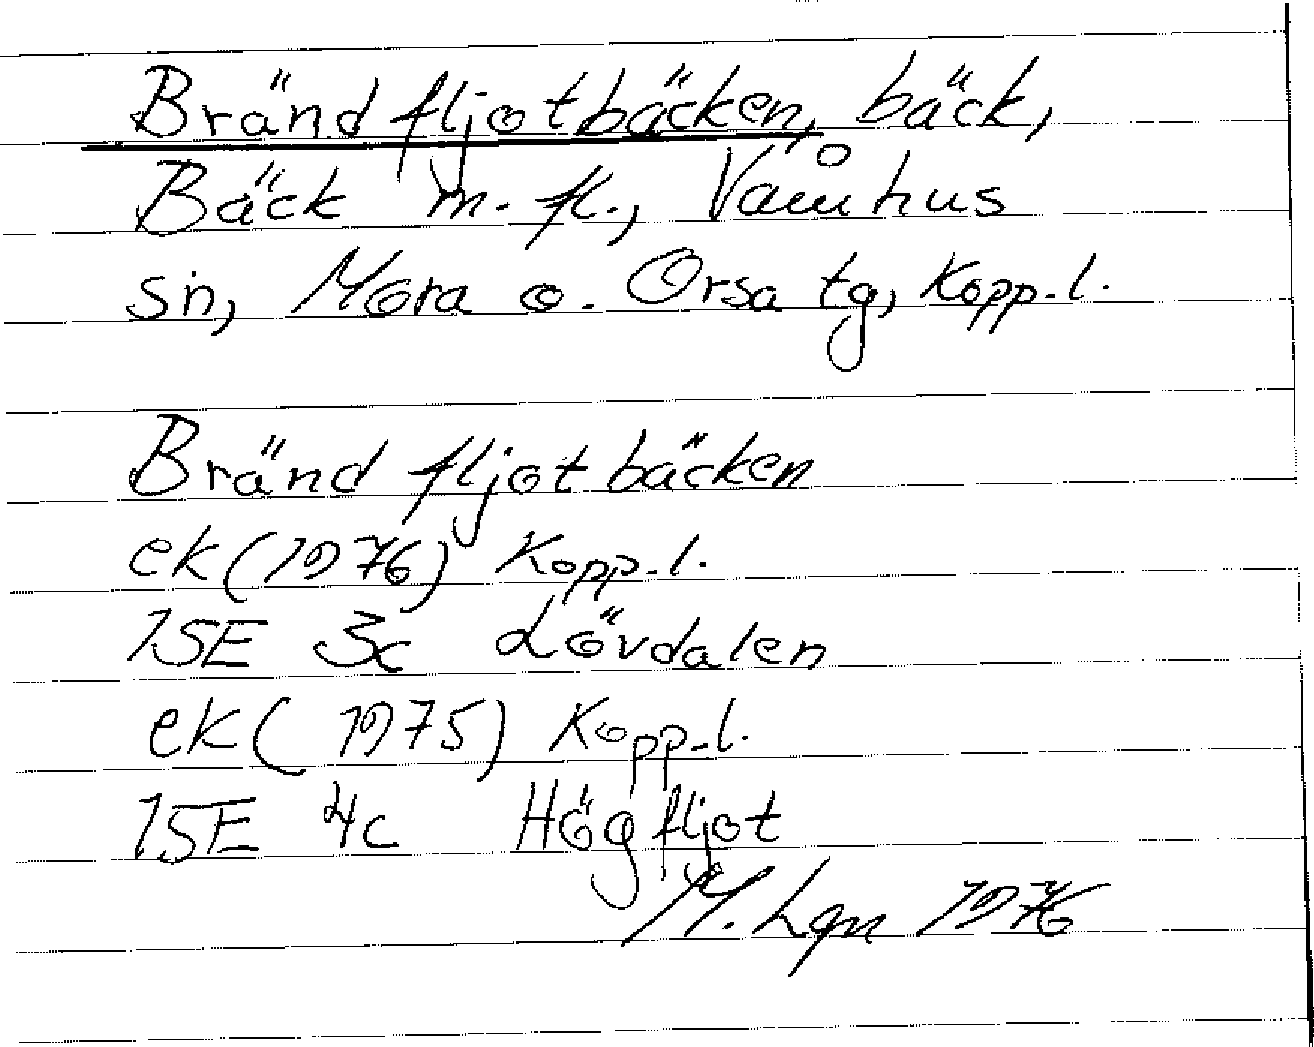 Brändfljotbäcken, bäck,
Bäck m. fl., Våmhus
sn, Mora o. Orsa tg, Kopp.l.
Brändfljotbäcken
ek (1976) Kopp.l.
15E 3c Lövdalen
ek (1975) Kopp.l.
15E 4c Högfljot
M. Lgn 1976